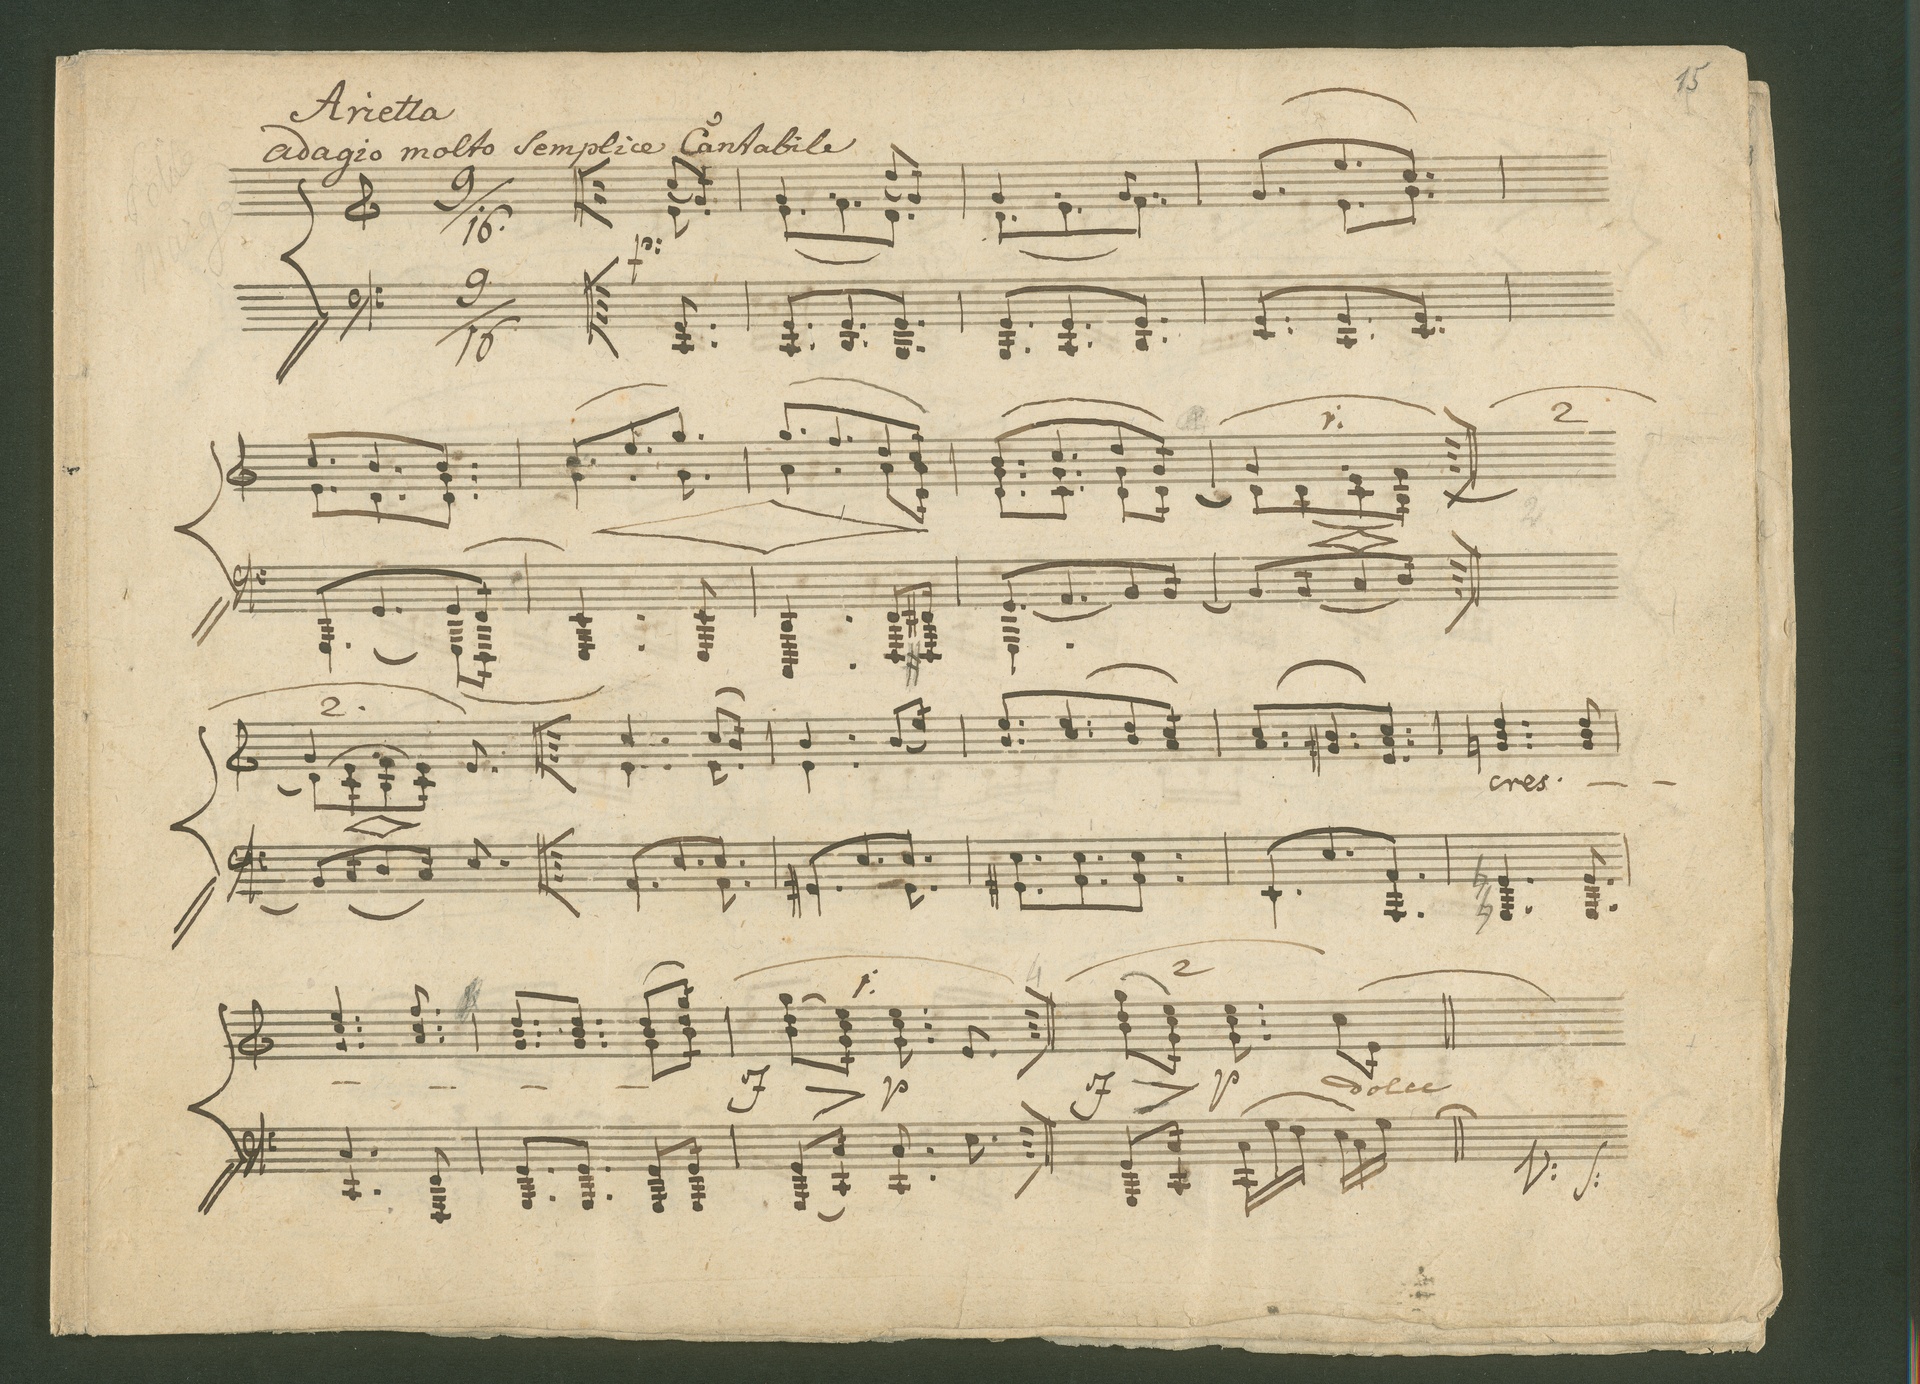 15
Arietta
adagio molto semplice e Cantabile
9/16
p:
9/16
1:
2
2
2.
cres. — —
— — — —
1:
4
2
f > p
f > p
dolce
V: S: